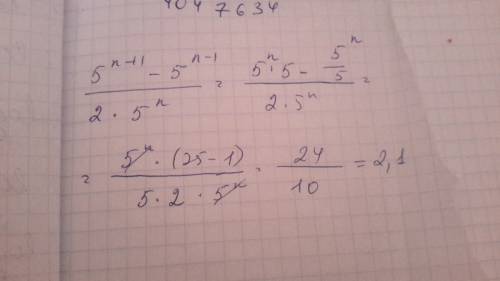 4047634
\frac{5^{n+1} - 5^{n-1}}{2 \cdot 5^n} = \frac{5^n \cdot 5 - \frac{5^n}{5}}{2 \cdot 5^n} =
= \frac{5^n \cdot (25-1)}{5 \cdot 2 \cdot 5^n} = \frac{24}{10} = 2,1